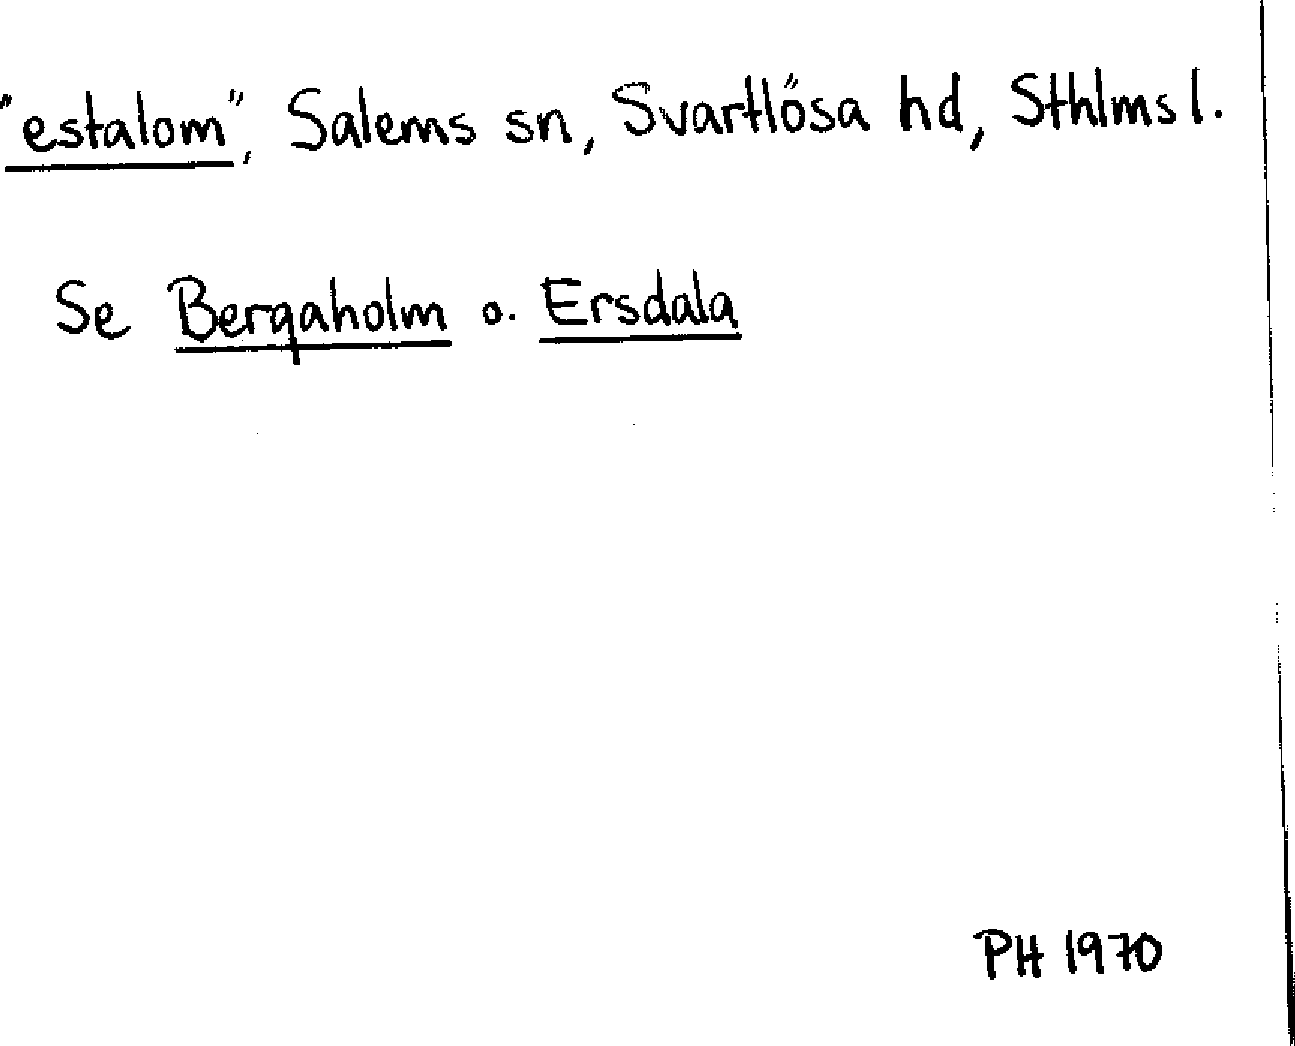 "estalom", Salems sn, Svartlösa hd, Sthlms l.
Se Bergaholm o. Ersdala
PH 1970